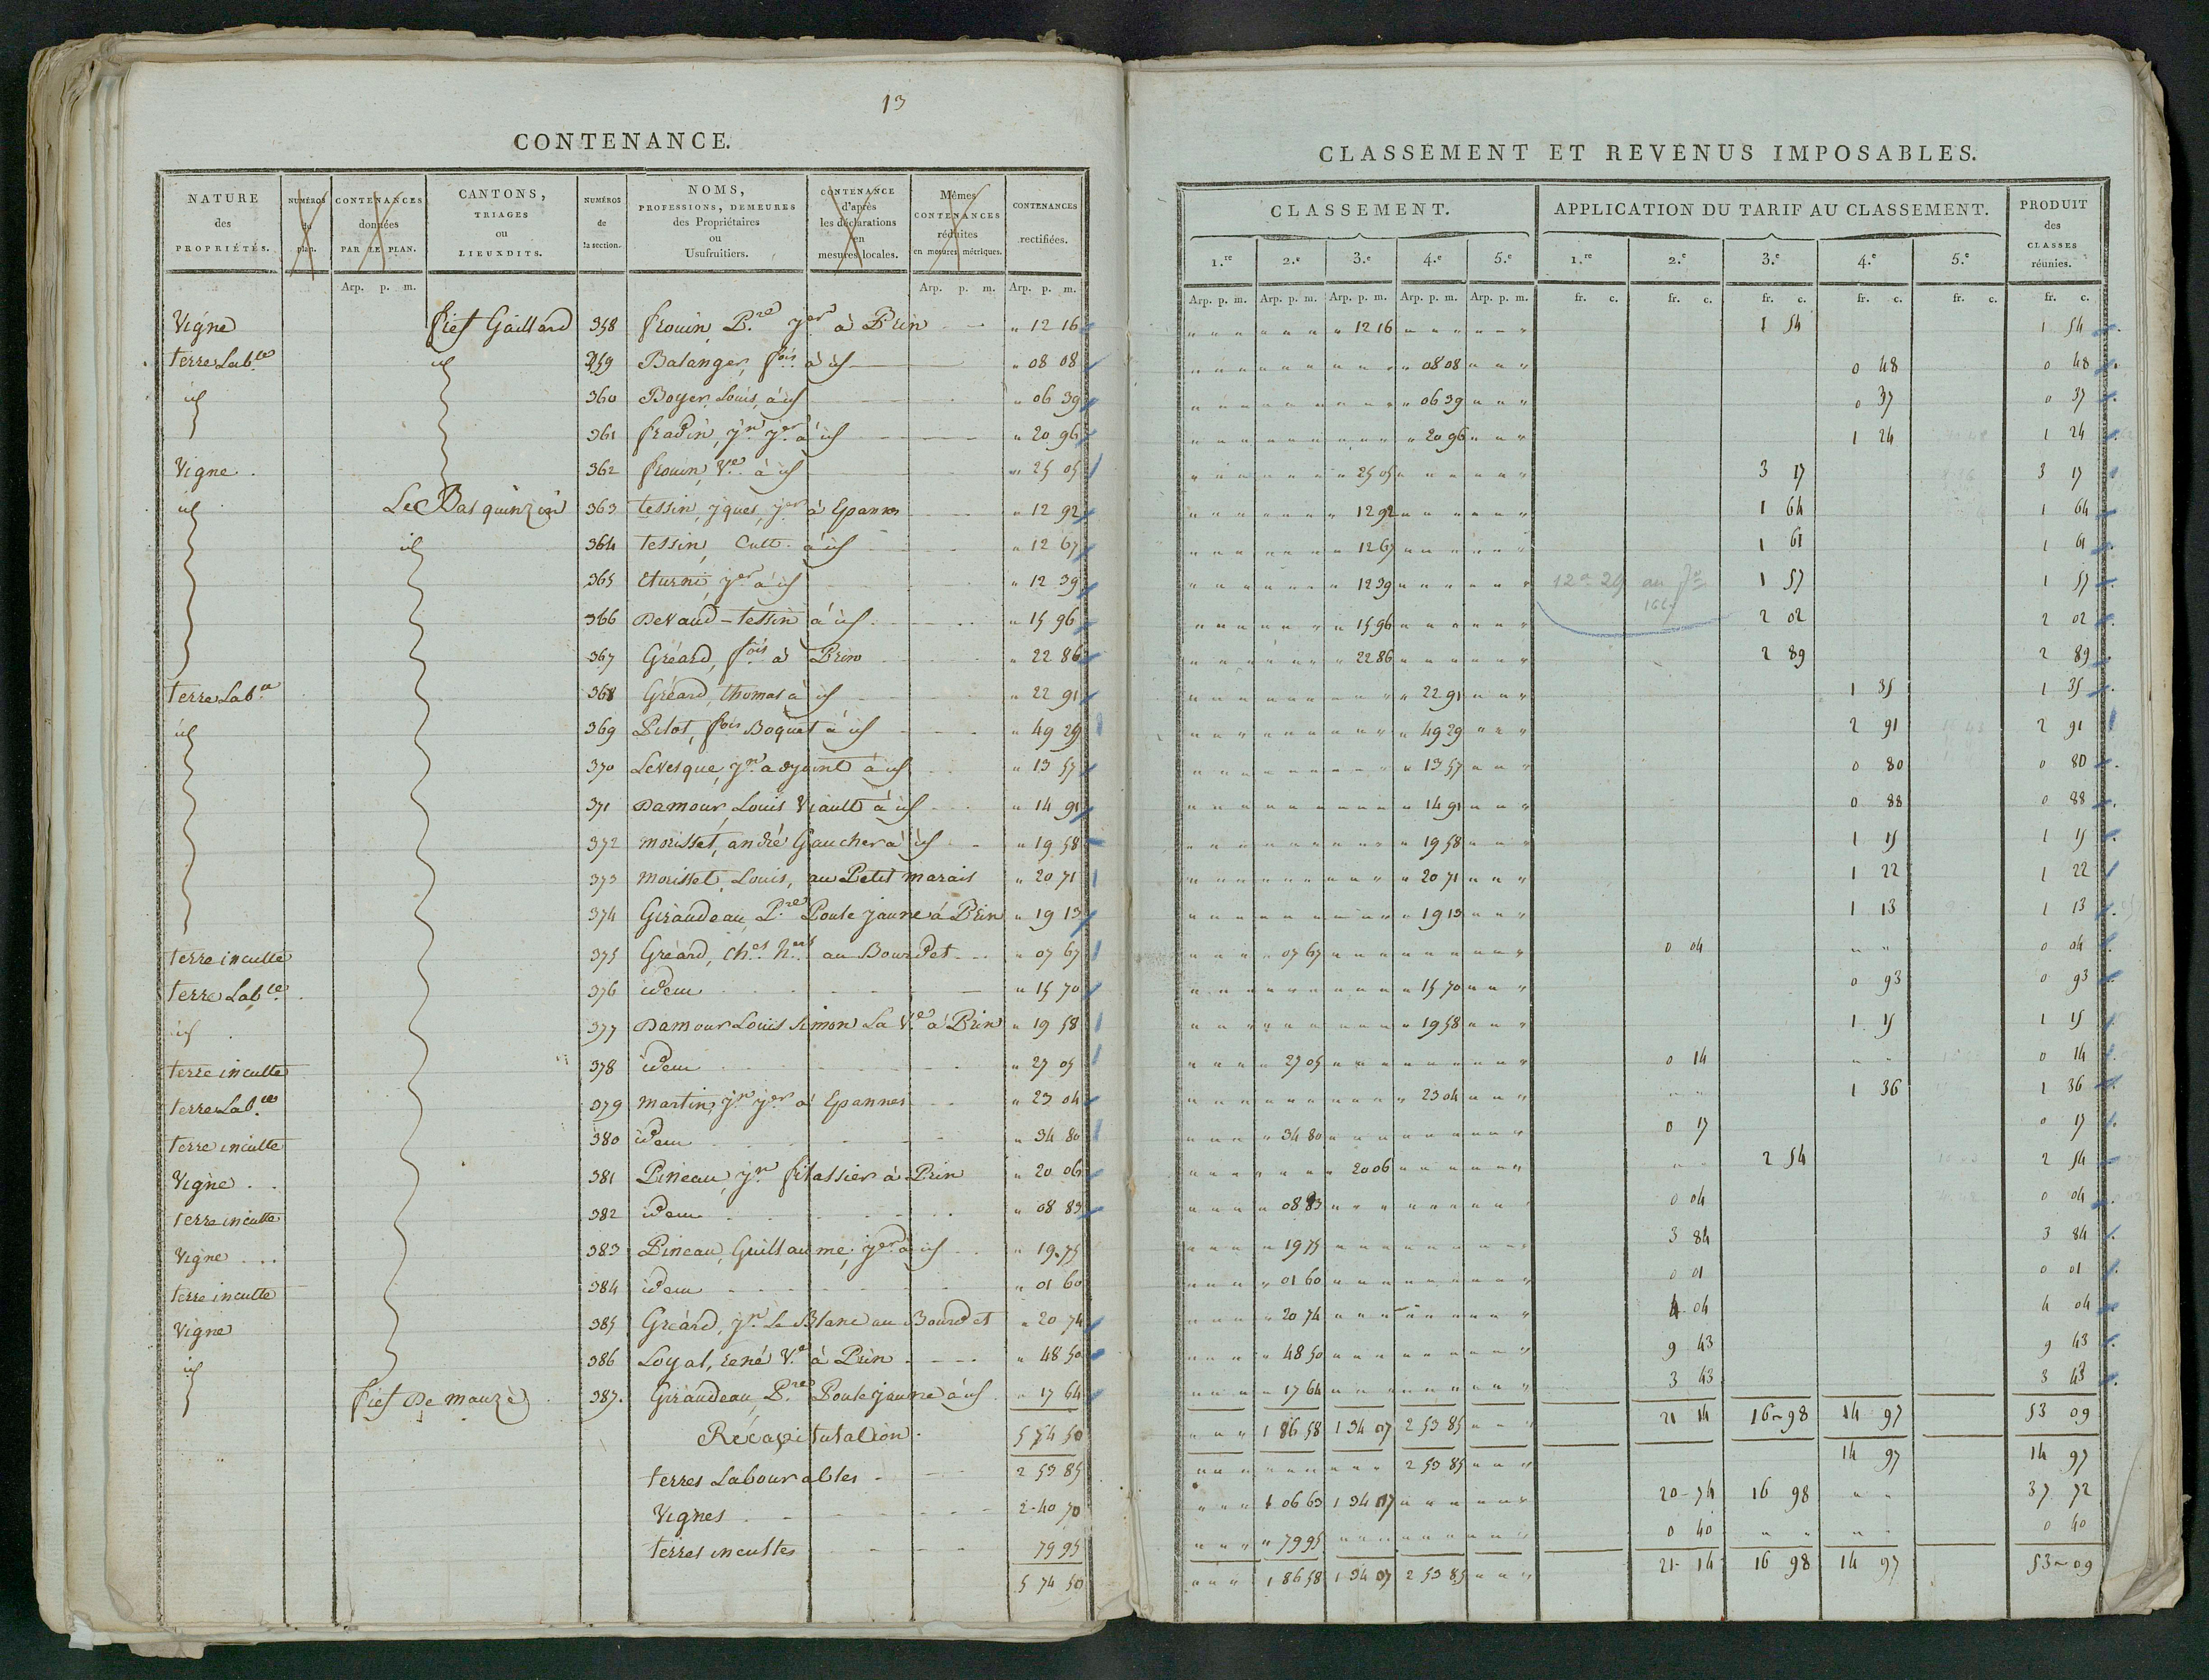 13
CONTENANCE.
NATURE des PROPRIÉTÉS.
NUMÉROS du plan.
CONTENANCES données PAR LE PLAN.
CANTONS, TRIAGES ou LIEUXDITS.
NUMÉROS de la section.
NOMS, PROFESSIONS, DEMEURES des Propriétaires ou Usufruitiers.
CONTENANCE d'après les déclarations en mesures locales.
Mêmes CONTENANCES réduites en mesures métriques.
CONTENANCES rectifiées.
Arp. p. m. Arp. p. m. Arp. p. m.
Vigne fief Gaillard 358 frouin P.re jer à Prin " 12 16
terre Lab.le id 359 Balanger, fois à id " 08 08
id 360 Boyer Louis, à id " 06 39
361 fradin, jn jer à id " 20 96
Vigne 362 frouin, Ve à id " 25 05
id Le Bas quinzin 363 tessin, jques, jer à Epannes " 12 92
id 364 tessin, Cult. à id " 12 67
365 Eturni, jer à id " 12 39
366 Devaud - tessin à id " 15 96
367 Gréard, fois à Prin " 22 86
terre Lab.le 368 Gréard, thomas à id " 22 91
id 369 Pilot, fois Boquet à id " 49 29
370 Levesque, jn adjoint à id " 13 57
371 Damour, Louis Viault à id " 14 91
372 morisset, andré Gaucher à id " 19 58
373 morisset, Louis, au Petit marais " 20 71
374 Giraudeau, P.re Poule jaune à Prin " 19 13
terre inculte 375 Gréard, ch.es h.ers au Bourdet " 07 67
terre Lab.le 376 idem " 15 70
id 377 Damour Louis Simon La Ve à Prin " 19 58
terre inculte 378 idem " 27 05
terre Lab.le 379 martin, jn jer à Epannes " 23 04
terre inculte 380 idem " 34 80
Vigne 381 Pineau, jn filassier à Prin " 20 06
terre inculte 382 idem " 08 83
Vigne 383 Pineau, Guillaume, jer à id " 19 75
terre inculte 384 idem " 01 60
Vigne 385 Gréard, jn Le Blanc au Bourdet " 20 74
id 386 Loyal, rené Ve à Prin " 48 50
fief De mauzé 387. Giraudeau, P.re Poule jaune à id " 17 64
Récapitulation. 5 74 50
terres Labourables 2 53 85
Vignes 2 40 70
terres incultes 79 95
5 74 50
CLASSEMENT ET REVENUS IMPOSABLES.
CLASSEMENT. APPLICATION DU TARIF AU CLASSEMENT. PRODUIT des CLASSES réunies.
1.re 2.e 3.e 4.e 5.e 1.re 2.e 3.e 4.e 5.e
Arp. p. m. Arp. p. m. Arp. p. m. Arp. p. m. Arp. p. m. fr. c. fr. c. fr. c. fr. c. fr. c. fr. c.
12 16 1 54 1 54
08 08 0 48 0 48
06 39 0 37 0 37
20 96 1 24 1 24
25 05 3 17 3 17
12 92 1 64 1 64
12 67 1 61 1 61
12 39 1 57 1 57
15 96 2 02 2 02
22 86 2 89 2 89
22 91 1 35 1 35
49 29 2 91 2 91
13 57 0 80 0 80
14 91 0 88 0 88
19 58 1 15 1 15
20 71 1 22 1 22
19 13 1 13 1 13
07 67 0 04 " " 0 04
15 70 0 93 0 93
19 58 1 15 1 15
27 05 0 14 " " 0 14
23 04 " " 1 36 1 36
34 80 0 17 0 17
20 06 " " 2 54 2 54
08 83 0 04 0 04
19 75 3 84 3 84
01 60 0 01 0 01
20 74 4 04 4 04
48 50 9 43 9 43
17 64 3 43 3 43
1 86 58 1 34 07 2 53 85 21 14 16 98 14 97 53 09
2 53 85 14 97 14 97
1 06 63 1 34 07 20 74 16 98 " " 37 72
79 95 0 40 " " " " 0 40
1 86 58 1 34 07 2 53 85 21 14 16 98 14 97 53 09